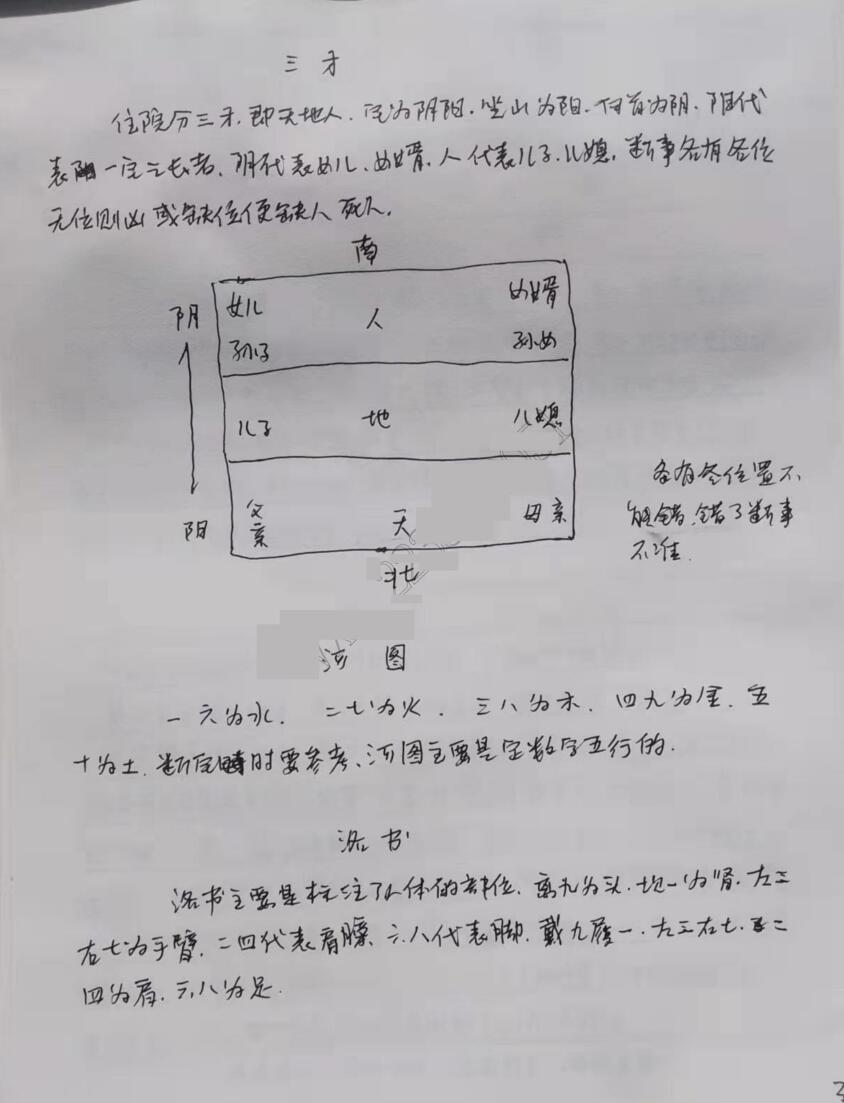 三才
住院分三才,即天地人,宅为阴阳,坐山为阳,向首为阴,阳代
表一宅之长者,阴代表女儿、女婿,人代表儿子、儿媳,断事各有各位
无位则凶或缺位便缺人死人.
南
阴 女儿 人 女婿
孙子 孙女
儿子 地 儿媳
各有各位置不
能错,错了断事
不准.
阳 父亲 天 母亲
北
河图
一六为水,二七为火,三八为木,四九为金,五
十为土,断宅时要参考,河图主要是定数字五行的.
洛书
洛书主要是标注了人体的部位,离九为头,坎一为肾,左三
右七为手臂,二四代表肩膀,六八代表脚,戴九履一,左三右七,二
四为肩,六八为足.
3